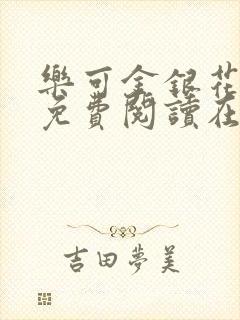 樂可金銀花
免費閱讀在
吉田夢美